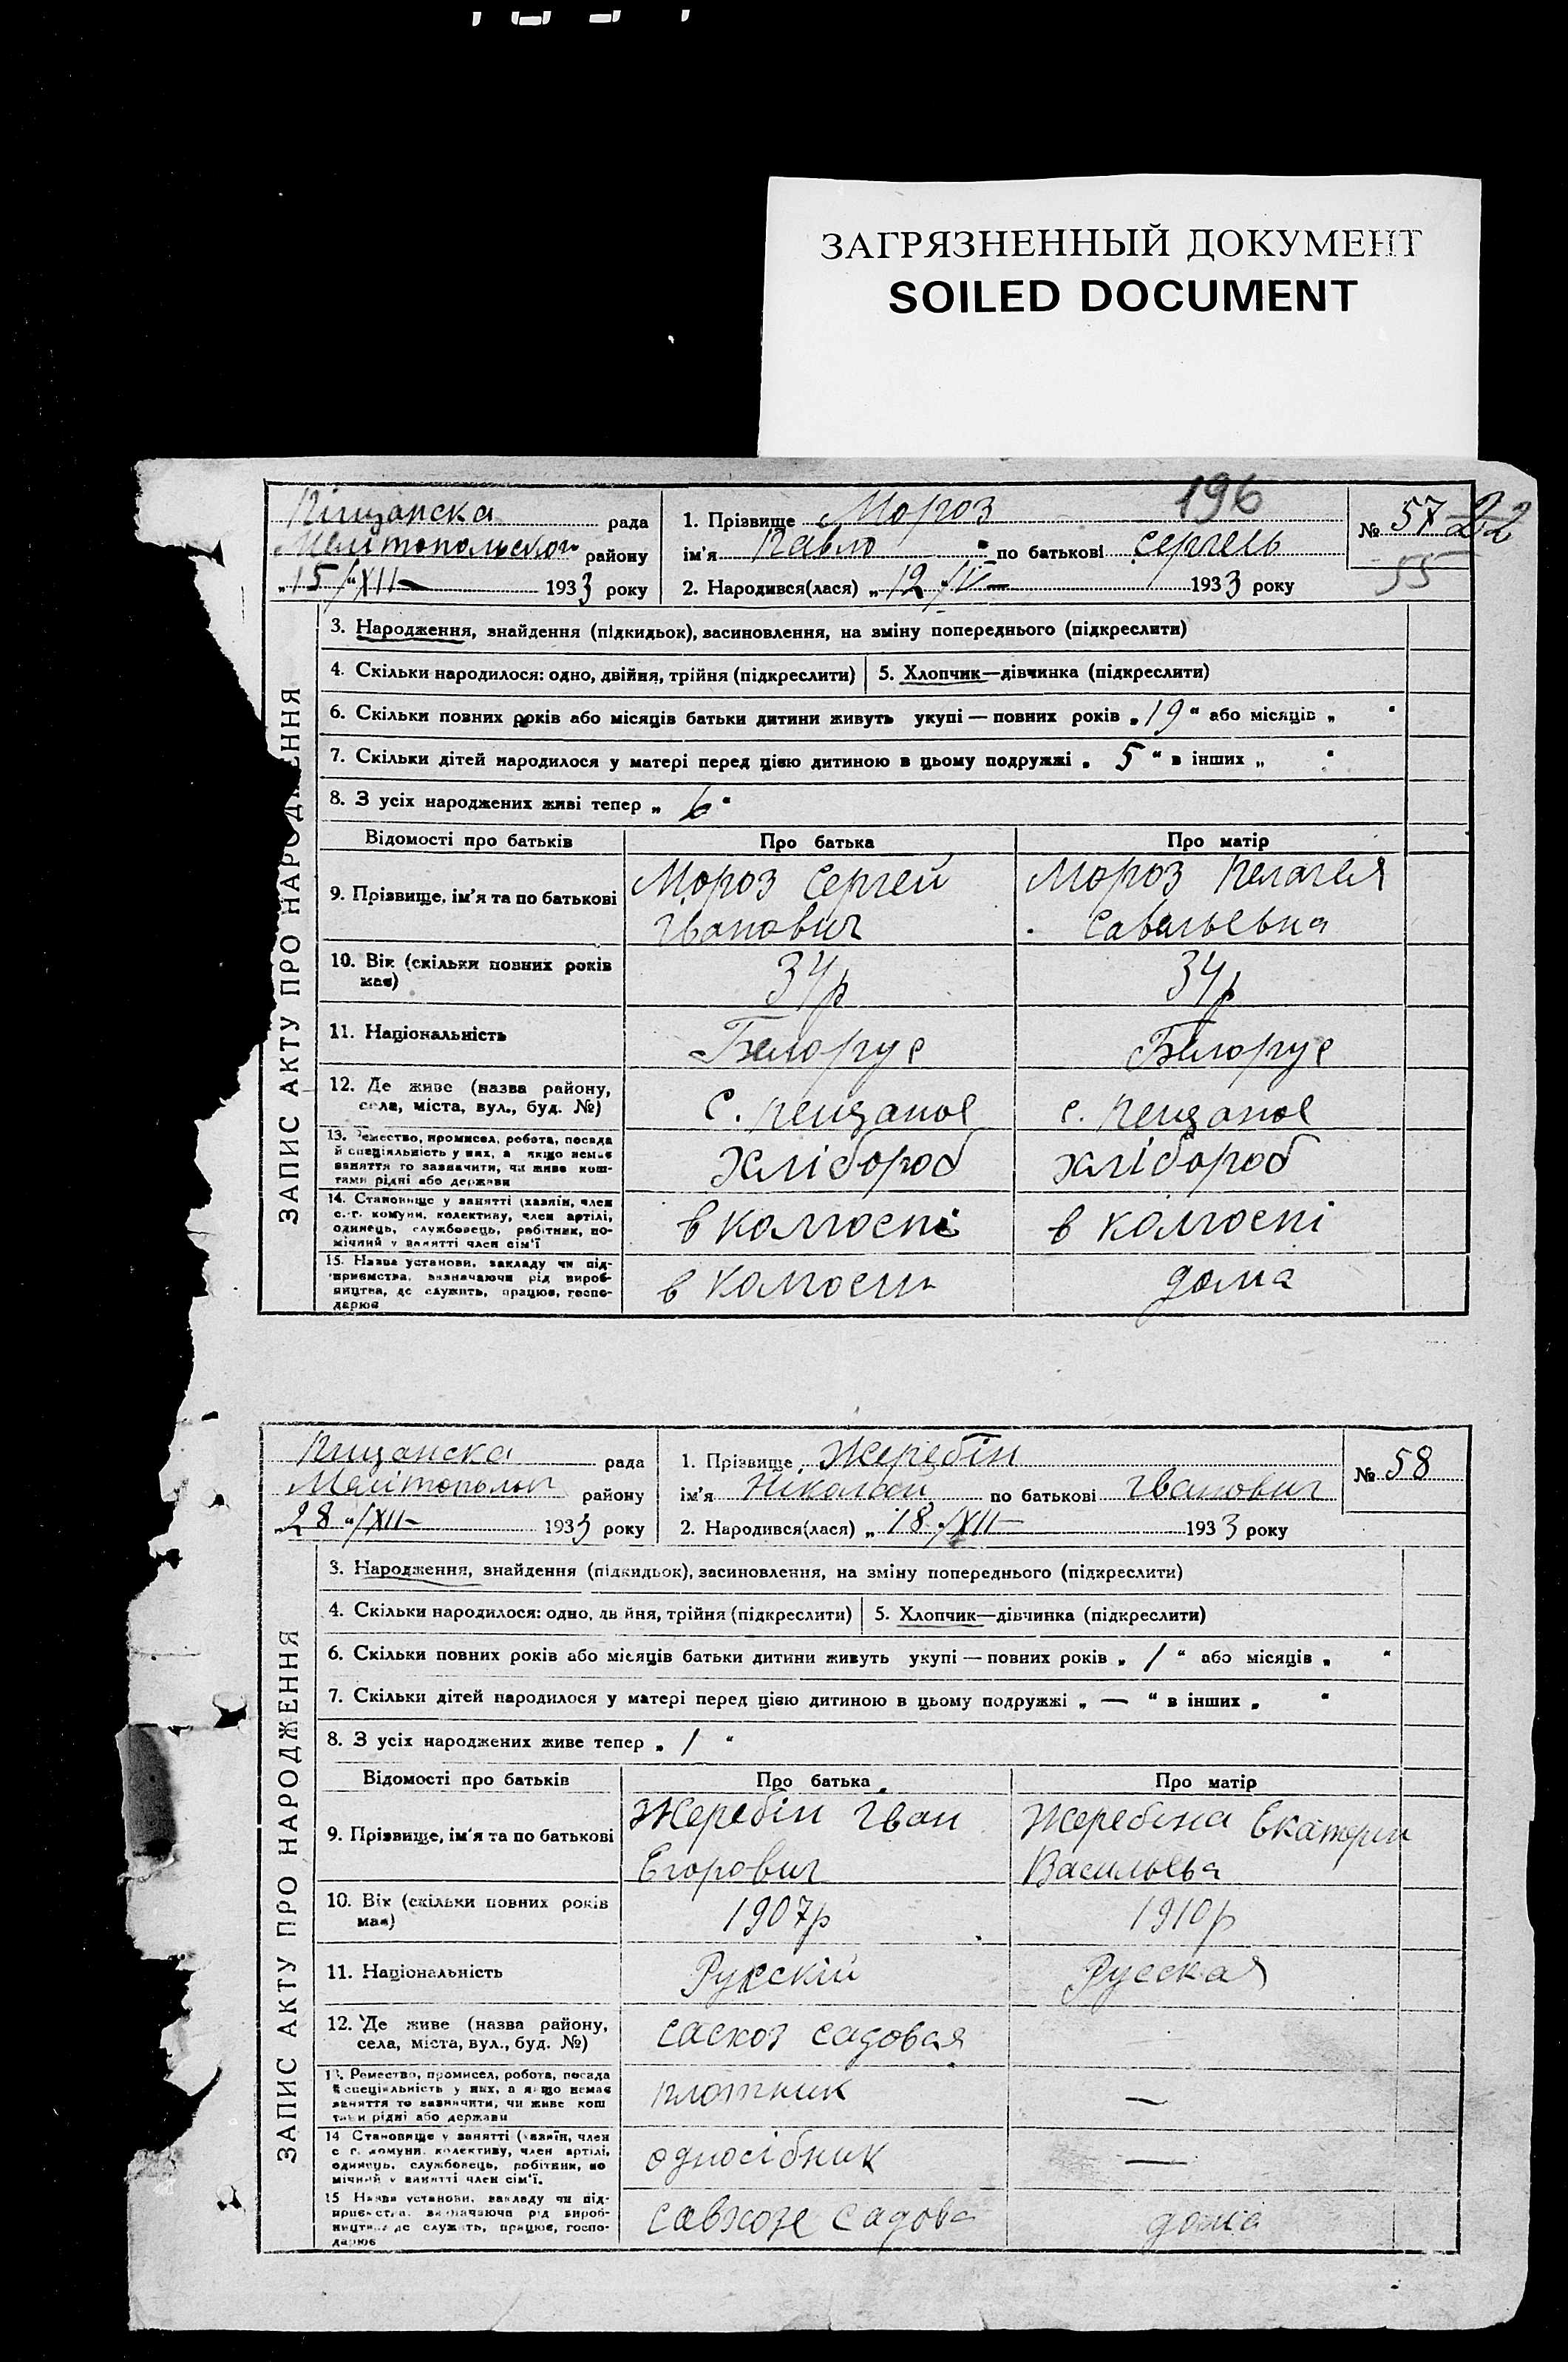 ЗАГРЯЗНЕННЫЙ ДОКУМЕНТ
SOILED DOCUMENT
196
Піщанска рада
Мелітопольског району
„15/"XII- 1933 року
1. Прізвище Мороз
ім'я Павло по батькові Сергеев
2. Народився(лася) „12 "/ 1933 року
№ 57 22
55
ЗАПИС АКТУ ПРО НАРОДЖЕННЯ
3. Народження, знайдення (підкидьок), засиновлення, на зміну попереднього (підкреслити)
4. Скільки народилося: одно, двійня, трійня (підкреслити) 5. Хлопчик—дівчинка (підкреслити)
6. Скільки повних років або місяців батьки дитини живуть укупі — повних років „19" або місяців „ "
7. Скільки дітей народилося у матері перед цією дитиною в цьому подружжі „5" в інших „ "
8. З усіх народжених живі тепер „6"
Відомості про батьків Про батька Про матір
9. Прізвище, ім'я та по батькові Мороз Сергей Мороз Пелагея
Іванович Савельевна
10. Вік (скільки повних років 34р 34р
має)
11. Національність Белорус Белорус
12. Де живе (назва району, с. Пещаное с. Пещаное
села, міста, вул., буд. №)
13. Ремество, промисел, робота, посада хлібороб хлібороб
й спеціяльність у них, а якщо немає
заняття то зазначити, чи живе кош-
тами рідні або держави
14. Становище у занятті (хазяїн, член в колгоспі в колгоспі
с.-г. комуни, колективу, член артілі,
одинець, службовець, робітник, по-
мічний у занятті член сім'ї
15. Назва установи, закладу чи під- в колгосп дома
приємства, зазначаючи рід вироб-
ництва, де служить, працює, госпо-
дарює
Пищанска рада
району
„28 "/XII- 1933 року
1. Прізвище Жеребін
ім'я Ніколай по батькові Іванович
2. Народився(лася) „18"/XII- 1933 року
№ 58
ЗАПИС АКТУ ПРО НАРОДЖЕННЯ
3. Народження, знайдення (підкидьок), засиновлення, на зміну попереднього (підкреслити)
4. Скільки народилося: одно, дв йня, трійня (підкреслити) 5. Хлопчик—дівчинка (підкреслити)
6. Скільки повних років або місяців батьки дитини живуть укупі — повних років „1" або місяців „ "
7. Скільки дітей народилося у матері перед цією дитиною в цьому подружжі „—" в інших „ "
8. З усіх народжених живе тепер „1"
Відомості про батьків Про батька Про матір
9. Прізвище, ім'я та по батькові Жеребін Іван Жеребіна Екатерин
Егорович Васильева
10. Вік (скільки повних років 1907р 1910р
має)
11. Національність Русскій Русская
12. Де живе (назва району, садовая
села, міста, вул., буд. №)
13. Ремество, промисел, робота, посада плотник —
й спеціяльність у них, а якщо немає
заняття то зазначити, чи живе кош
тами рідні або держави
14 Становище у занятті (хазяїн, член односібник —
с г. комуни, колективу, член артілі,
одинець, службовець, робітник, по
мічний у занятті член сім'ї.
15 Назва установи, закладу чи під- Садова дома
приємства, зазначаючи рід вироб-
ництва де служить, працює, госпо-
дарює